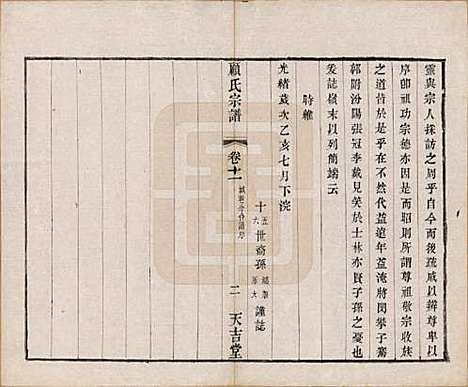 靈與宗人採訪之周乎自今而後疏戚以辨尊卑以
序卽祖功宗德亦因是而昭則所謂尊祖敬宗收族
之道昔於是乎在不然代益遠年益淹將閔攀子騫
郭附汾陽張冠李戴見笑於士林亦賢子孫之憂也
爰誌嶺末以列簡端云
時維
光緒歲次乙亥七月下浣
十五六世裔孫 謹誌
顧氏宗譜 卷十一 二 天吉堂